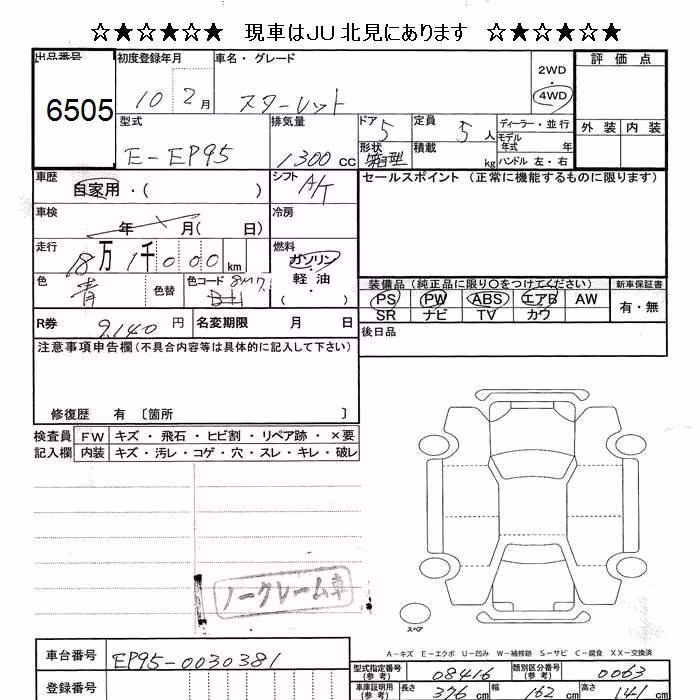 ☆★☆★☆★ 現車はJU北見にあります ☆★☆★☆★
出品番号 初度登録年月 車名・グレード 評価点
6505 10 2月 スターレット 2WD 4WD
型式 排気量 ドア 5 定員 5人 ディーラー・並行 外装 内装
E-EP95 1300cc 形状 箱型 積載 kg モデル年式 年
ハンドル 左・右
車歴 自家用・( ) シフト A/T セールスポイント(正常に機能するものに限ります)
車検 年 月( 日) 冷房
走行 18万1千000km 燃料 ガソリン・軽油・( )
色 青 色替 色コード 8M7 装備品(純正品に限り○をつけてください) 新車保証書
PS PW ABS エアB AW 有・無
SR ナビ TV カワ
R券 9,140円 名変期限 月 日 後日品
注意事項申告欄(不具合内容等は具体的に記入して下さい)
修復歴 有〔箇所 〕
検査員 FW キズ・飛石・ヒビ割・リペア跡・×要
記入欄 内装 キズ・汚レ・コゲ・穴・スレ・キレ・破レ
ノークレーム車
スペア
A-キズ E-エクボ U-凹み W-補修跡 S-サビ C-腐食 XX-交換済
車台番号 EP95-0030381 型式指定番号(参考) 08416 類別区分番号(参考) 0063
登録番号 車庫証明用(参考) 長さ 376cm 幅 162cm 高さ 141cm